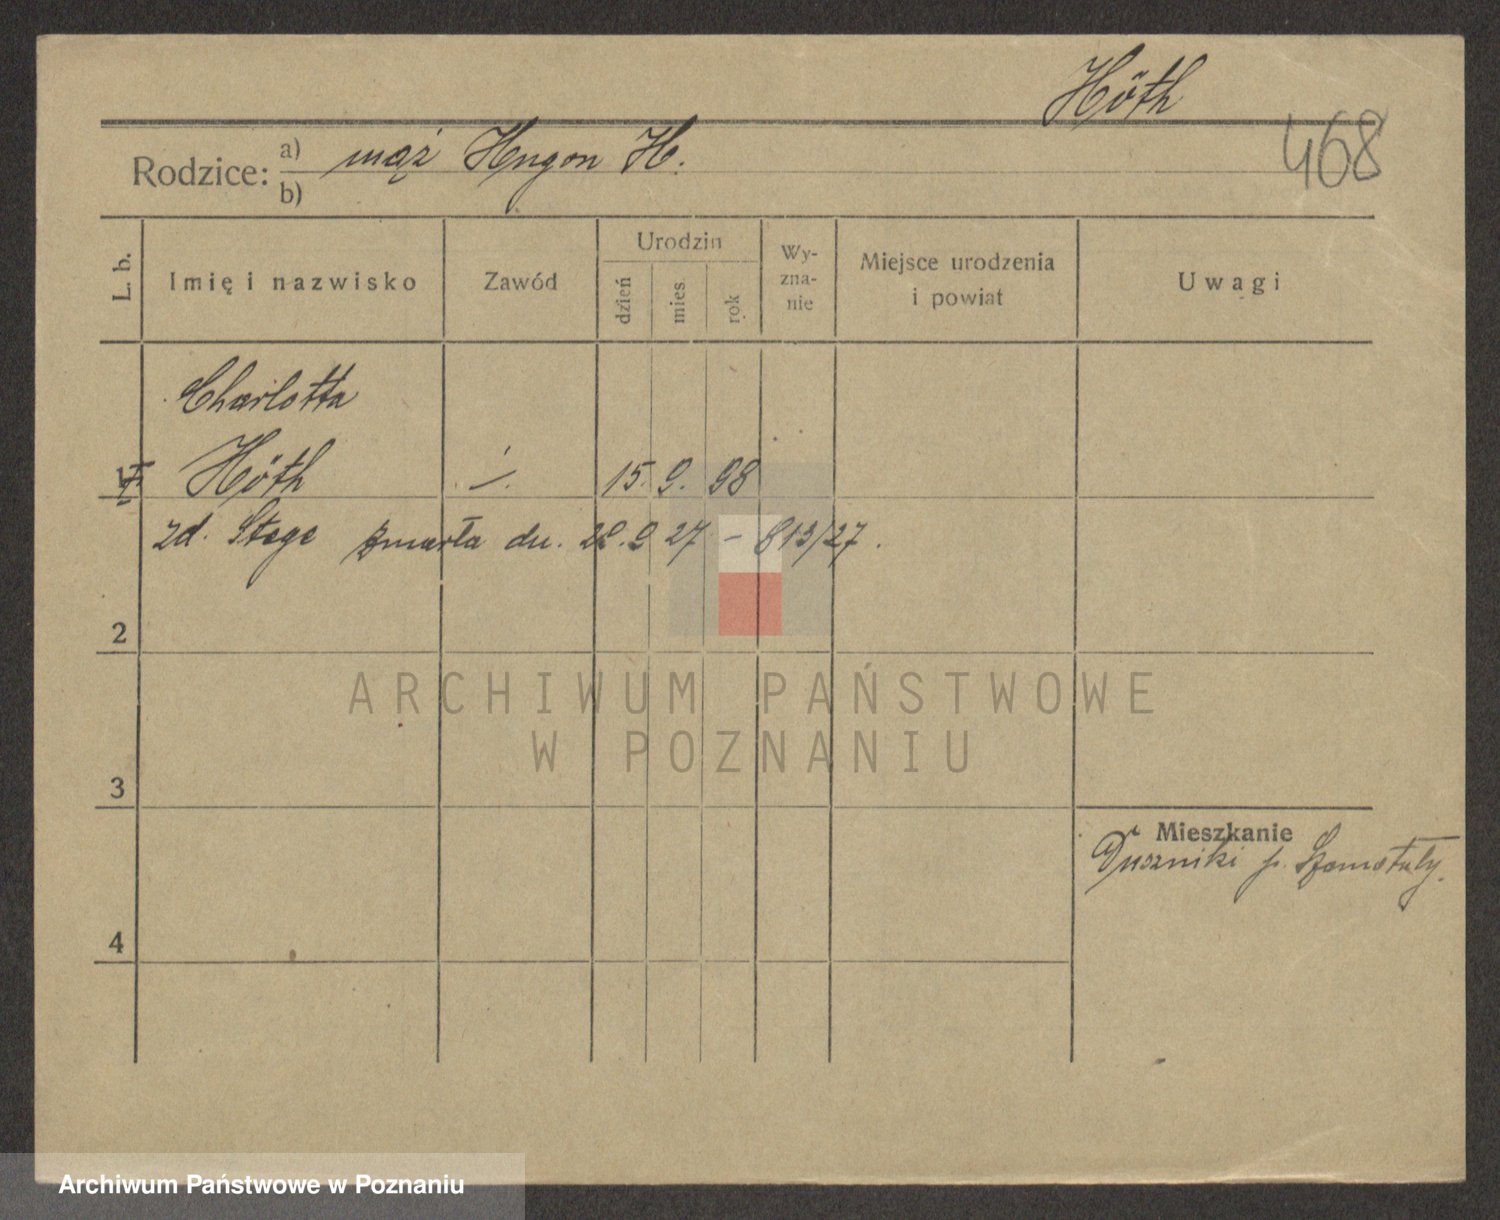 Höth
468
Rodzice: a) mąż Hugon H.
b)
L. b.
Imię i nazwisko
Zawód
Urodzin
dzień
mies.
rok
Wy-
zna-
nie
Miejsce urodzenia
i powiat
Uwagi
Charlotta
1 Höth 15. 9. 98
zd. Stege zmarła dn. 28.9 27 - 813/27.
2
3
4
Mieszkanie
Duszniki p. Szamotuły.
ARCHIWUM PAŃSTWOWE
W POZNANIU
Archiwum Państwowe w Poznaniu